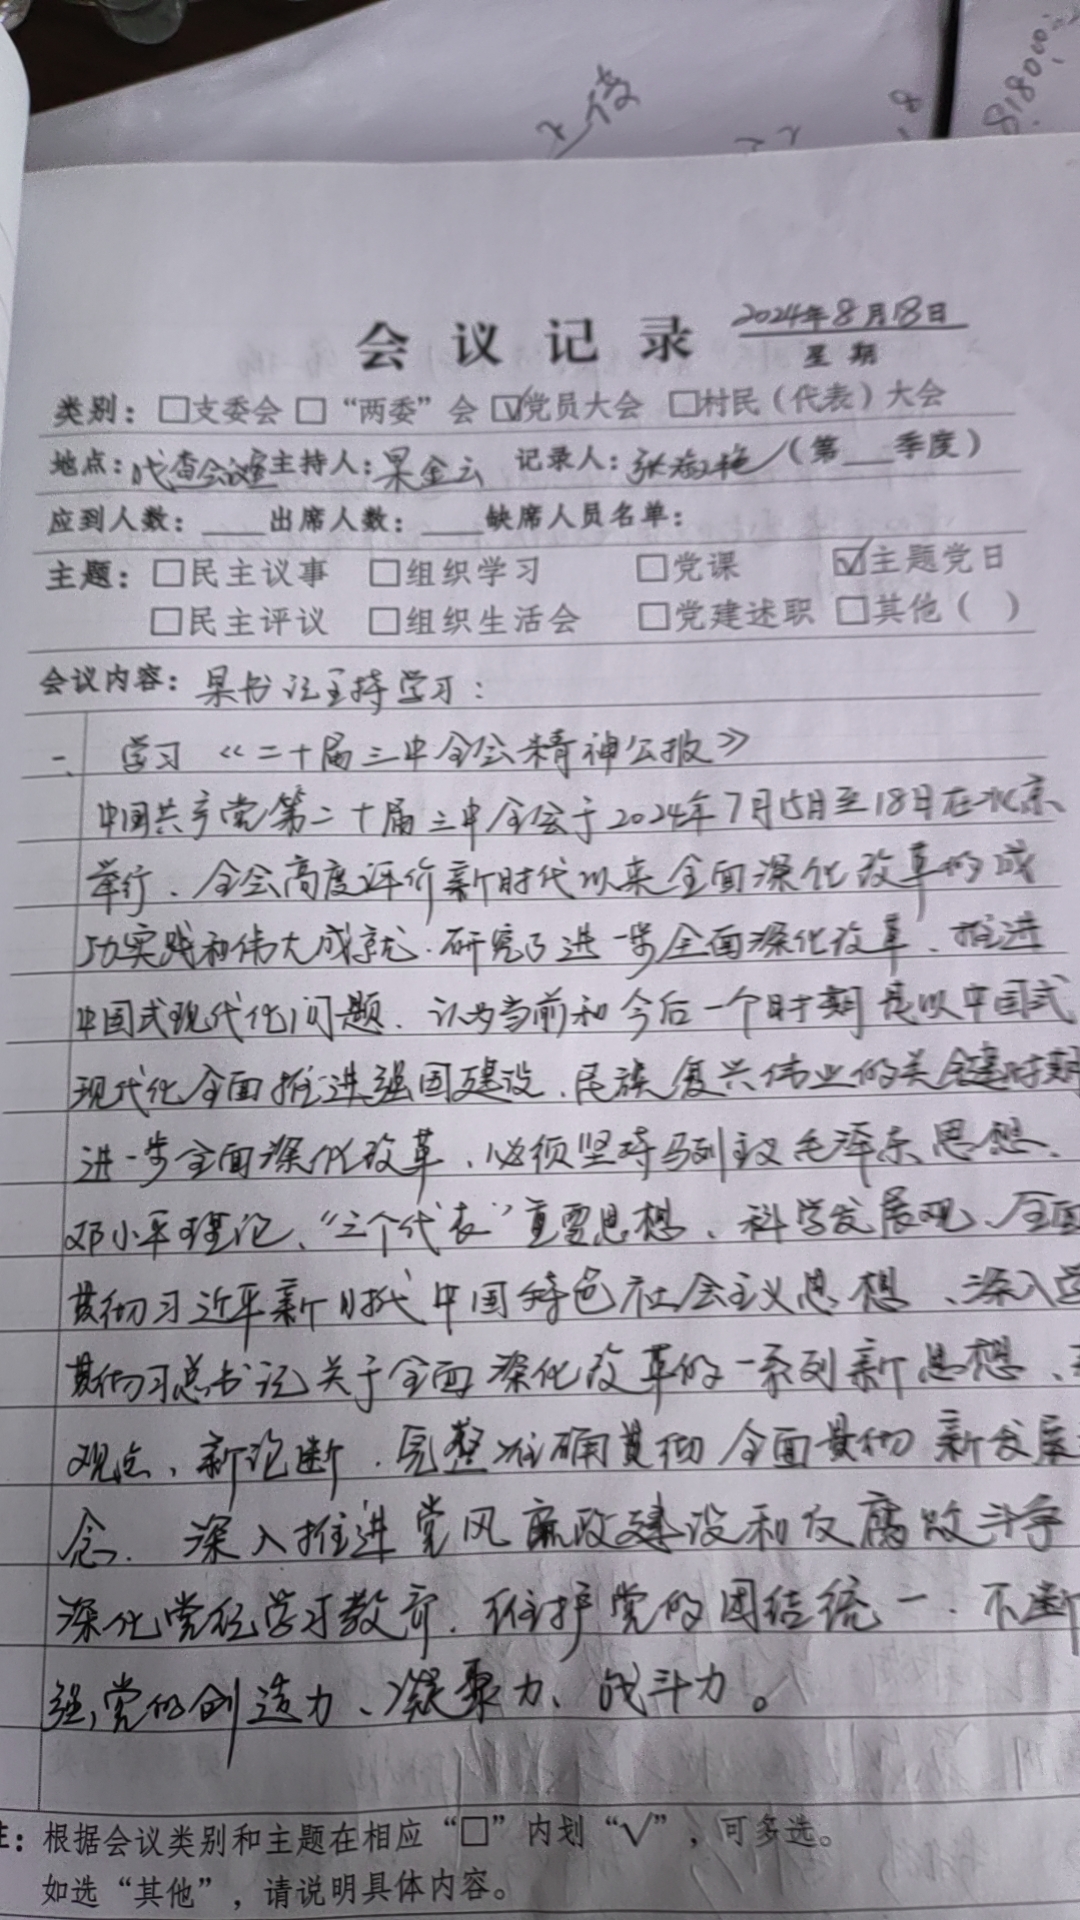 会议记录 2024年8月18日
星期
类别：□支委会 □“两委”会 ☑党员大会 □村民（代表）大会
地点： 会议室 主持人：果金云 记录人：张 艳（第__季度）
应到人数：____出席人数：____缺席人员名单：
主题：□民主议事 □组织学习 □党课 ☑主题党日
□民主评议 □组织生活会 □党建述职 □其他（ ）
会议内容：果书记主持学习：
一、 学习《二十届三中全会精神公报》
中国共产党第二十届三中全会于2024年7月15日至18日在北京
举行、全会高度评价新时代以来全面深化改革的成
功实践和伟大成就．研究了进一步全面深化改革、推进
中国式现代化问题．认为当前和今后一个时期是以中国式
现代化全面推进强国建设．民族复兴伟业的关键时期
进一步全面深化改革、必须坚持马列主义毛泽东思想、
邓小平理论、“三个代表”重要思想、科学发展观、全面
贯彻习近平新时代中国特色社会主义思想、深入学
贯彻习总书记关于全面深化改革的一系列新思想、
观点、新论断．完整准确贯彻全面贯彻新发展
念．深入推进党风廉政建设和反腐败斗争
深化党纪学习教育．维护党的团结统一．不断
强党的创造力、凝聚力、战斗力。
注：根据会议类别和主题在相应“□”内划“√”，可多选。
如选“其他”，请说明具体内容。